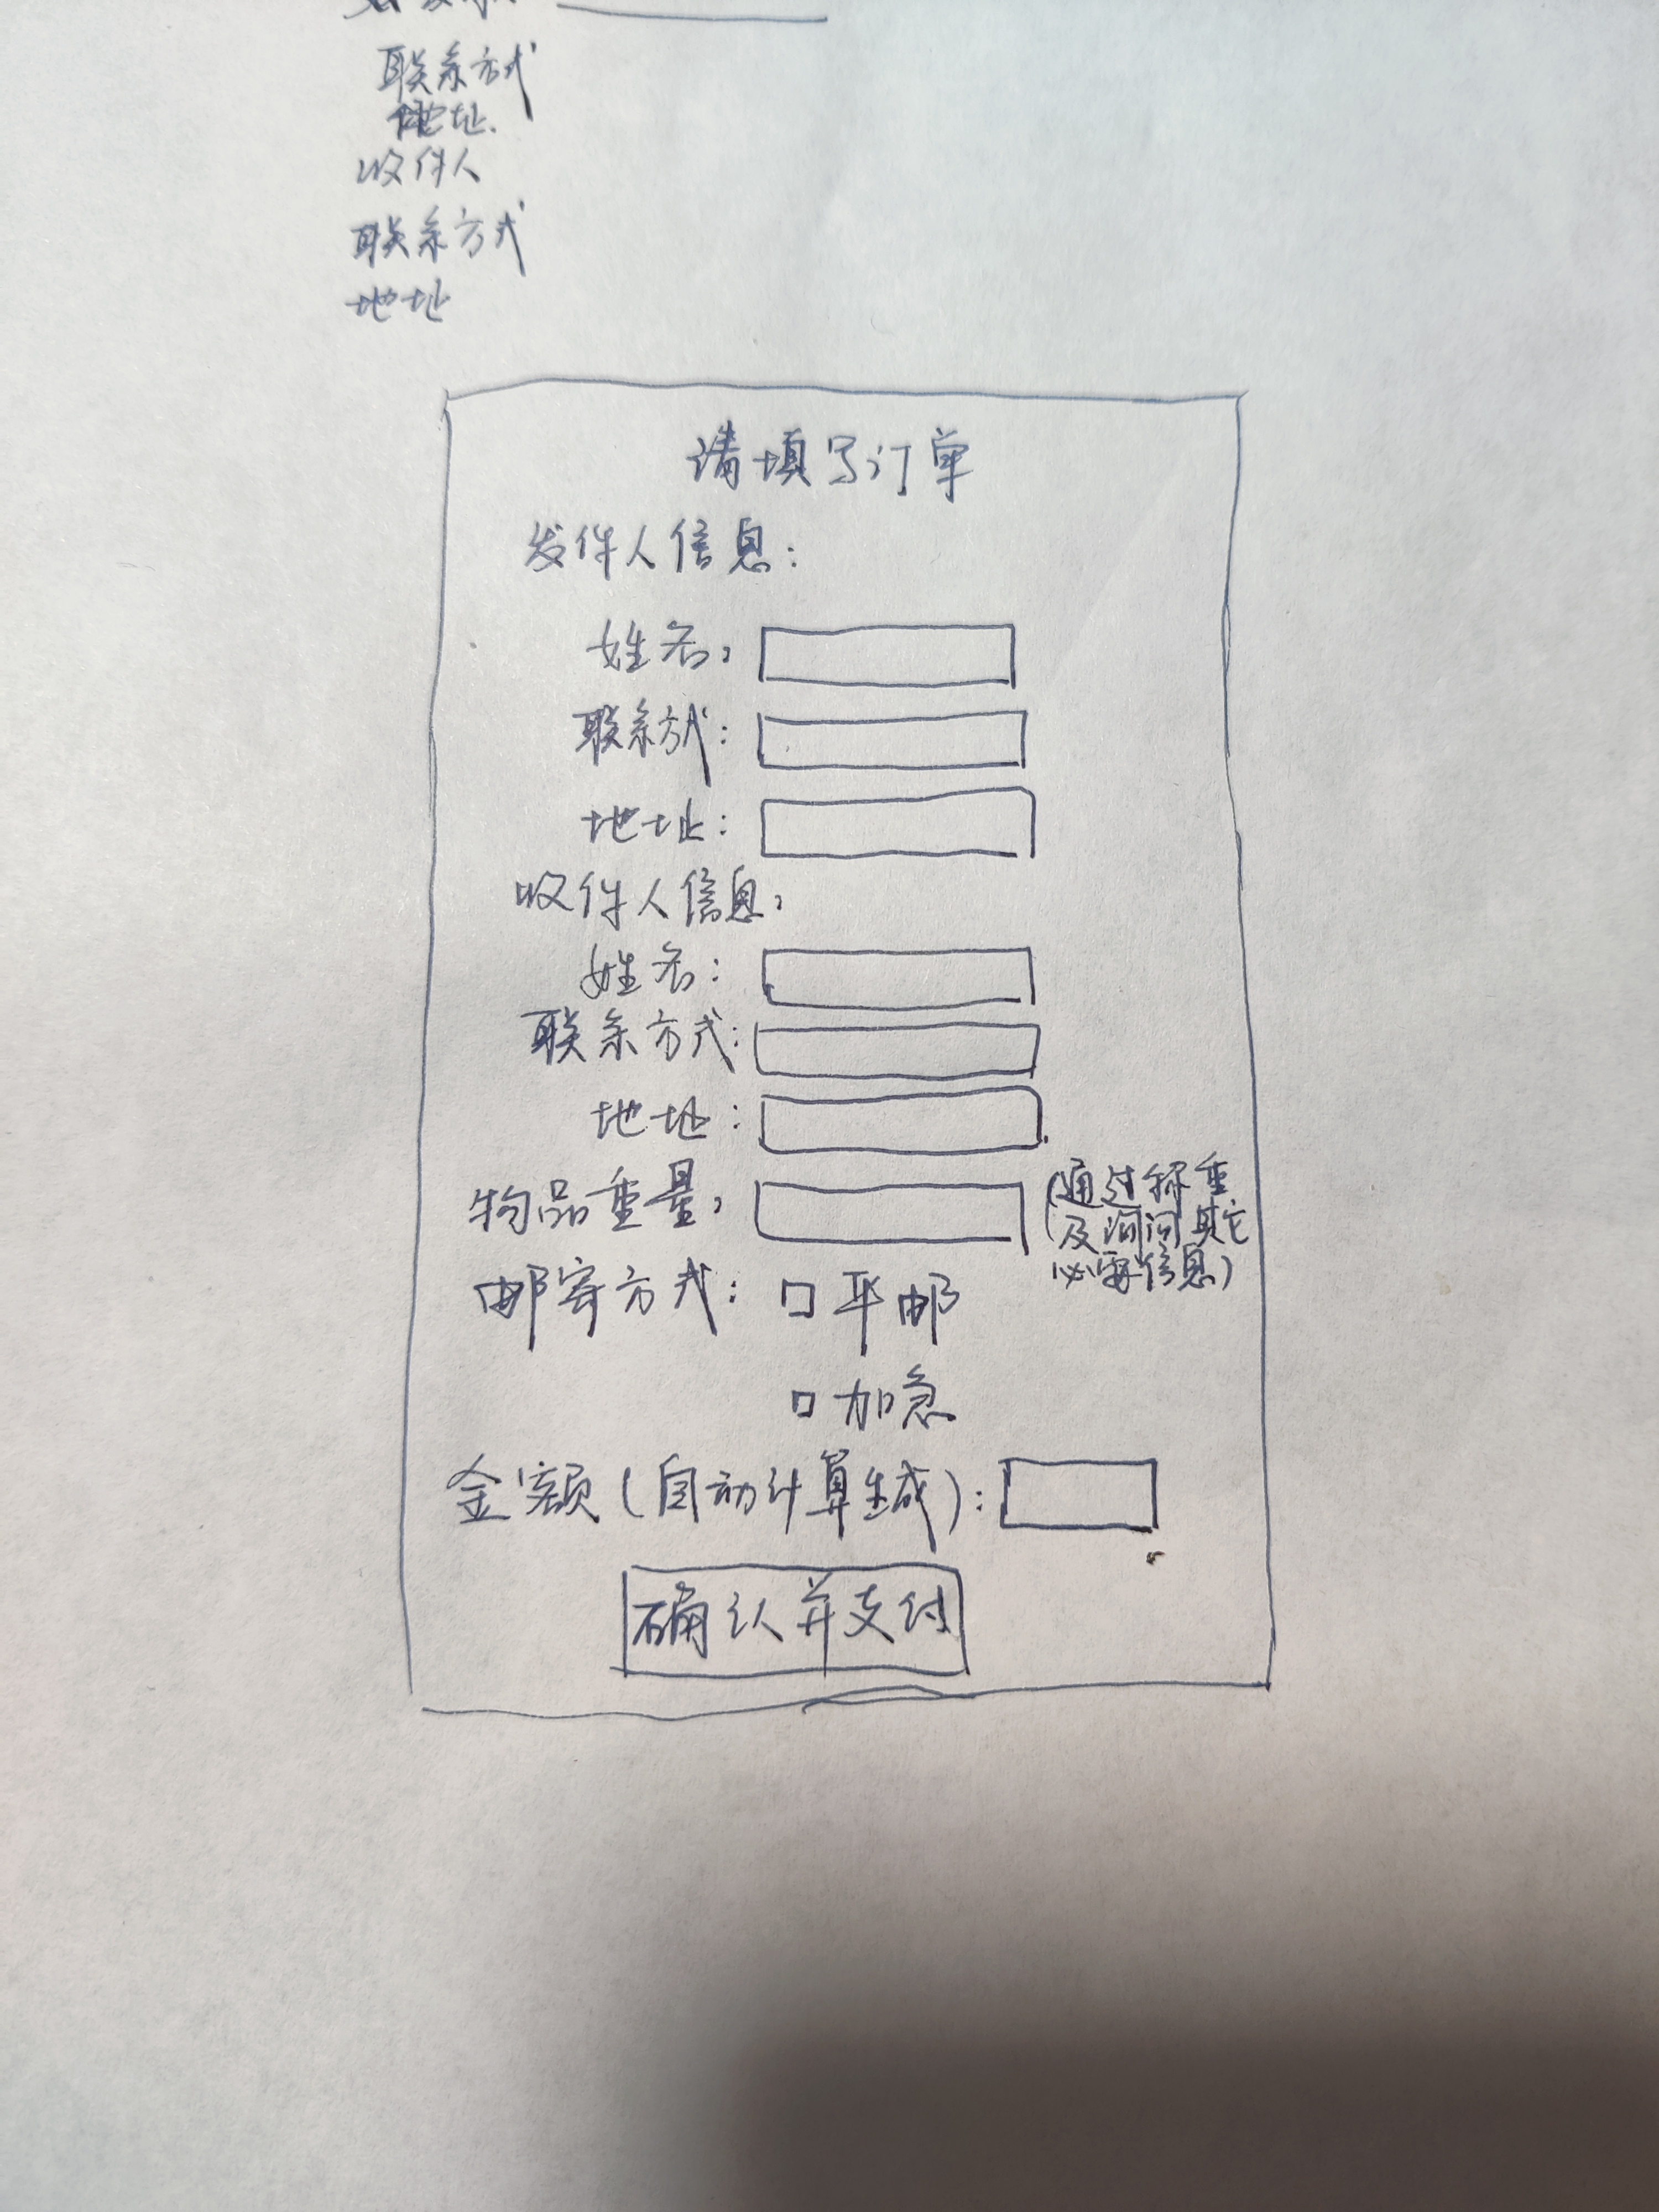 联系方式
地址.
收件人
联系方式
地址
请填写订单
发件人信息:
姓名:
联系方式:
地址:
收件人信息:
姓名:
联系方式:
地址:
物品重量:
(通过称重
及询问其它
必需信息)
邮寄方式: 口平邮
口加急
金额(自动计算生成):
确认并支付